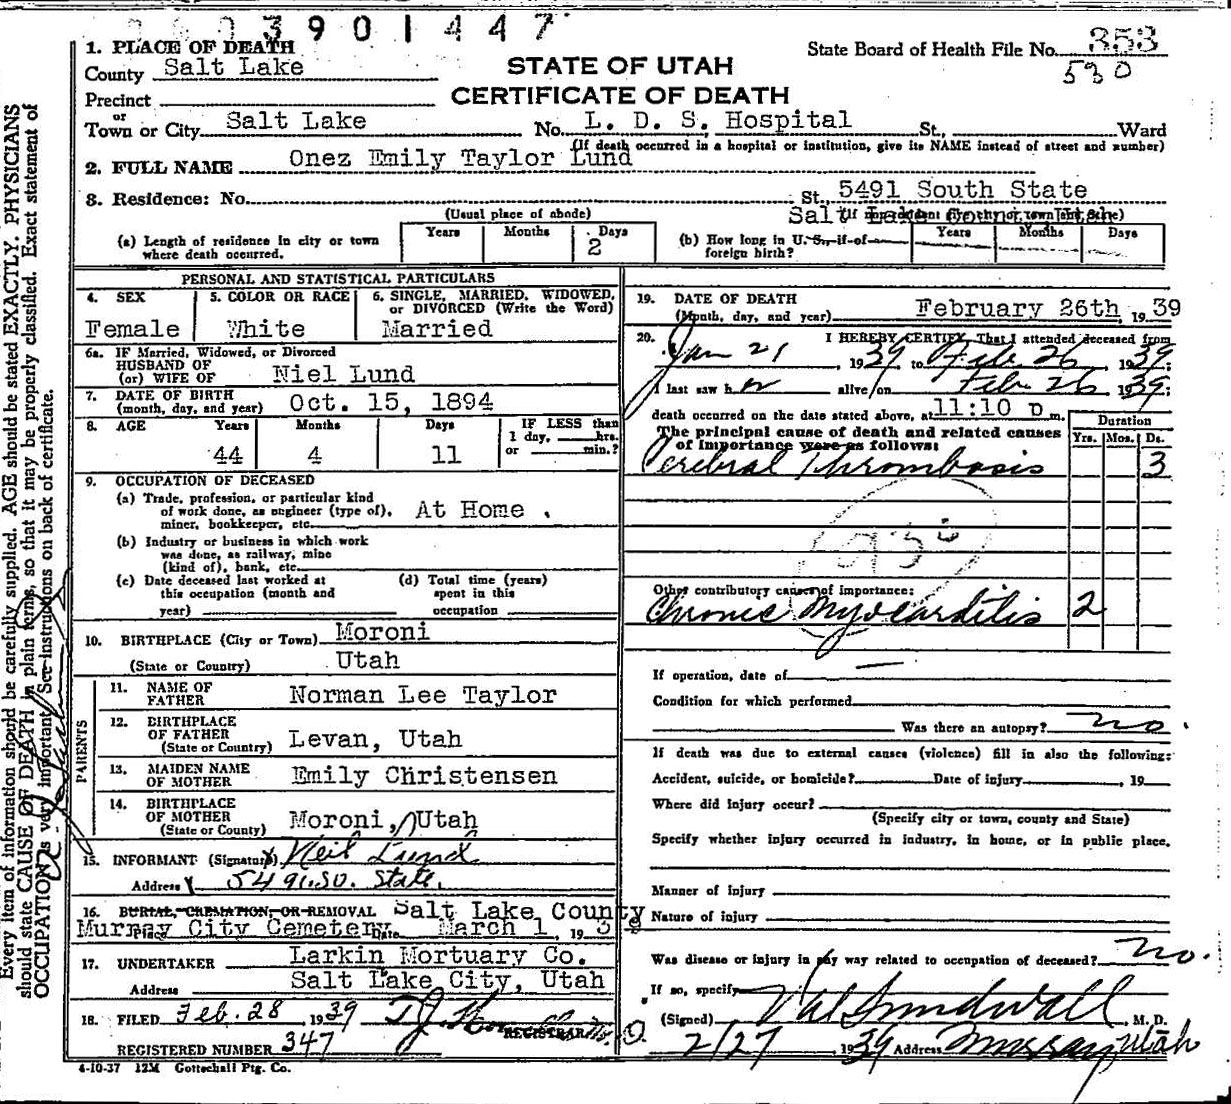 3901447
1. PLACE OF DEATH
County Salt Lake
STATE OF UTAH
CERTIFICATE OF DEATH
State Board of Health File No. 353
530
Precinct
or
Town or City Salt Lake No. L. D. S. Hospital St., Ward
(If death occurred in a hospital or institution, give its NAME instead of street and number)
2. FULL NAME Onez Emily Taylor Lund
3. Residence: No. St. 5491 South State
Salt Lake County, Utah
(Usual place of abode)
(a) Length of residence in city or town where death occurred. Years Months Days 2
(b) How long in U. S., if of foreign birth? Years Months Days
PERSONAL AND STATISTICAL PARTICULARS
4. SEX Female
5. COLOR OR RACE White
6. SINGLE, MARRIED, WIDOWED, or DIVORCED (Write the Word) Married
6a. IF Married, Widowed, or Divorced
HUSBAND OF
(or) WIFE OF Niel Lund
7. DATE OF BIRTH
(month, day, and year) Oct. 15, 1894
8. AGE Years 44 Months 4 Days 11
IF LESS than 1 day, hrs. or min.?
9. OCCUPATION OF DECEASED
(a) Trade, profession, or particular kind
of work done, as engineer (type of),
miner, bookkeeper, etc. At Home .
(b) Industry or business in which work
was done, as railway, mine
(kind of), bank, etc.
(c) Date deceased last worked at
this occupation (month and
year)
(d) Total time (years)
spent in this
occupation
10. BIRTHPLACE (City or Town) Moroni
(State or Country) Utah
PARENTS
11. NAME OF FATHER Norman Lee Taylor
12. BIRTHPLACE OF FATHER
(State or Country) Levan, Utah
13. MAIDEN NAME OF MOTHER Emily Christensen
14. BIRTHPLACE OF MOTHER
(State or County) Moroni, Utah
15. INFORMANT (Signature) Neil Lund
Address 5491 So. State.
16. BURIAL, CREMATION, OR REMOVAL Salt Lake County
Place Murray City Cemetery Date March 1, 1939
17. UNDERTAKER Larkin Mortuary Co.
Address Salt Lake City, Utah
18. FILED Feb. 28 1939
REGISTRAR
REGISTERED NUMBER 347
4-10-37 12M Gottschall Ptg. Co.
19. DATE OF DEATH
(Month, day, and year) February 26th, 1939
20. I HEREBY CERTIFY, That I attended deceased from
Jan 21, 1939 to Feb 26, 1939;
I last saw her alive on Feb 26 1939;
death occurred on the date stated above, at 11:10 p m.
The principal cause of death and related causes
of importance were as follows:
Duration
Yrs. Mos. Ds.
Cerebral Thrombosis 3
Other contributory causes of importance:
Chronic Myocarditis 2
If operation, date of —
Condition for which performed
Was there an autopsy? no.
If death was due to external causes (violence) fill in also the following:
Accident, suicide, or homicide? Date of injury , 19
Where did injury occur?
(Specify city or town, county and State)
Specify whether injury occurred in industry, in home, or in public place.
Manner of injury
Nature of injury
Was disease or injury in any way related to occupation of deceased? no.
If so, specify
(Signed) Val Sundwall, M. D.
2/27 1939 Address Murray, Utah
Every item of information should be carefully supplied. AGE should be stated EXACTLY. PHYSICIANS
should state CAUSE OF DEATH in plain terms, so that it may be properly classified. Exact statement of
OCCUPATION is very important. See instructions on back of certificate.